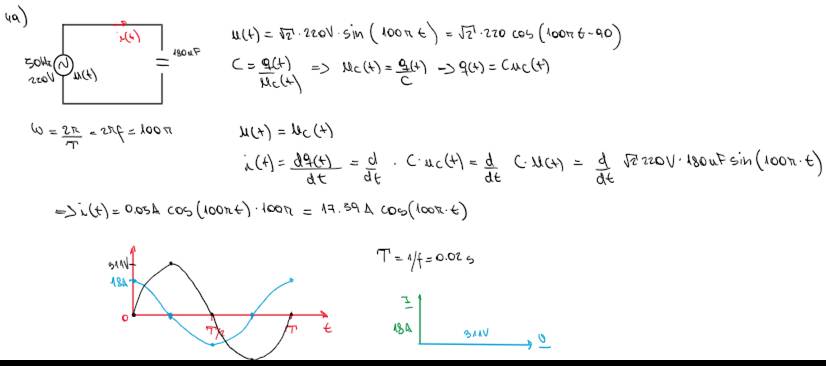 4a)
i(t)
50Hz
220V
u(t)
180uF
u(t) = √2 · 220V · sin(100π t) = √2 · 220 cos(100π t - 90)
C = q(t)/u_C(t) => u_C(t) = q(t)/C -> q(t) = C u_C(t)
ω = 2π/T = 2πf = 100π
u(t) = u_C(t)
i(t) = dq(t)/dt = d/dt · C · u_C(t) = d/dt C · u(t) = d/dt √2 220V · 180uF sin(100π · t)
=> i(t) = 0.05A cos(100π t) · 100π = 17.59A cos(100π · t)
T = 1/f = 0.02s
311V
18A
0
T/2
T
t
I
18A
311V
U